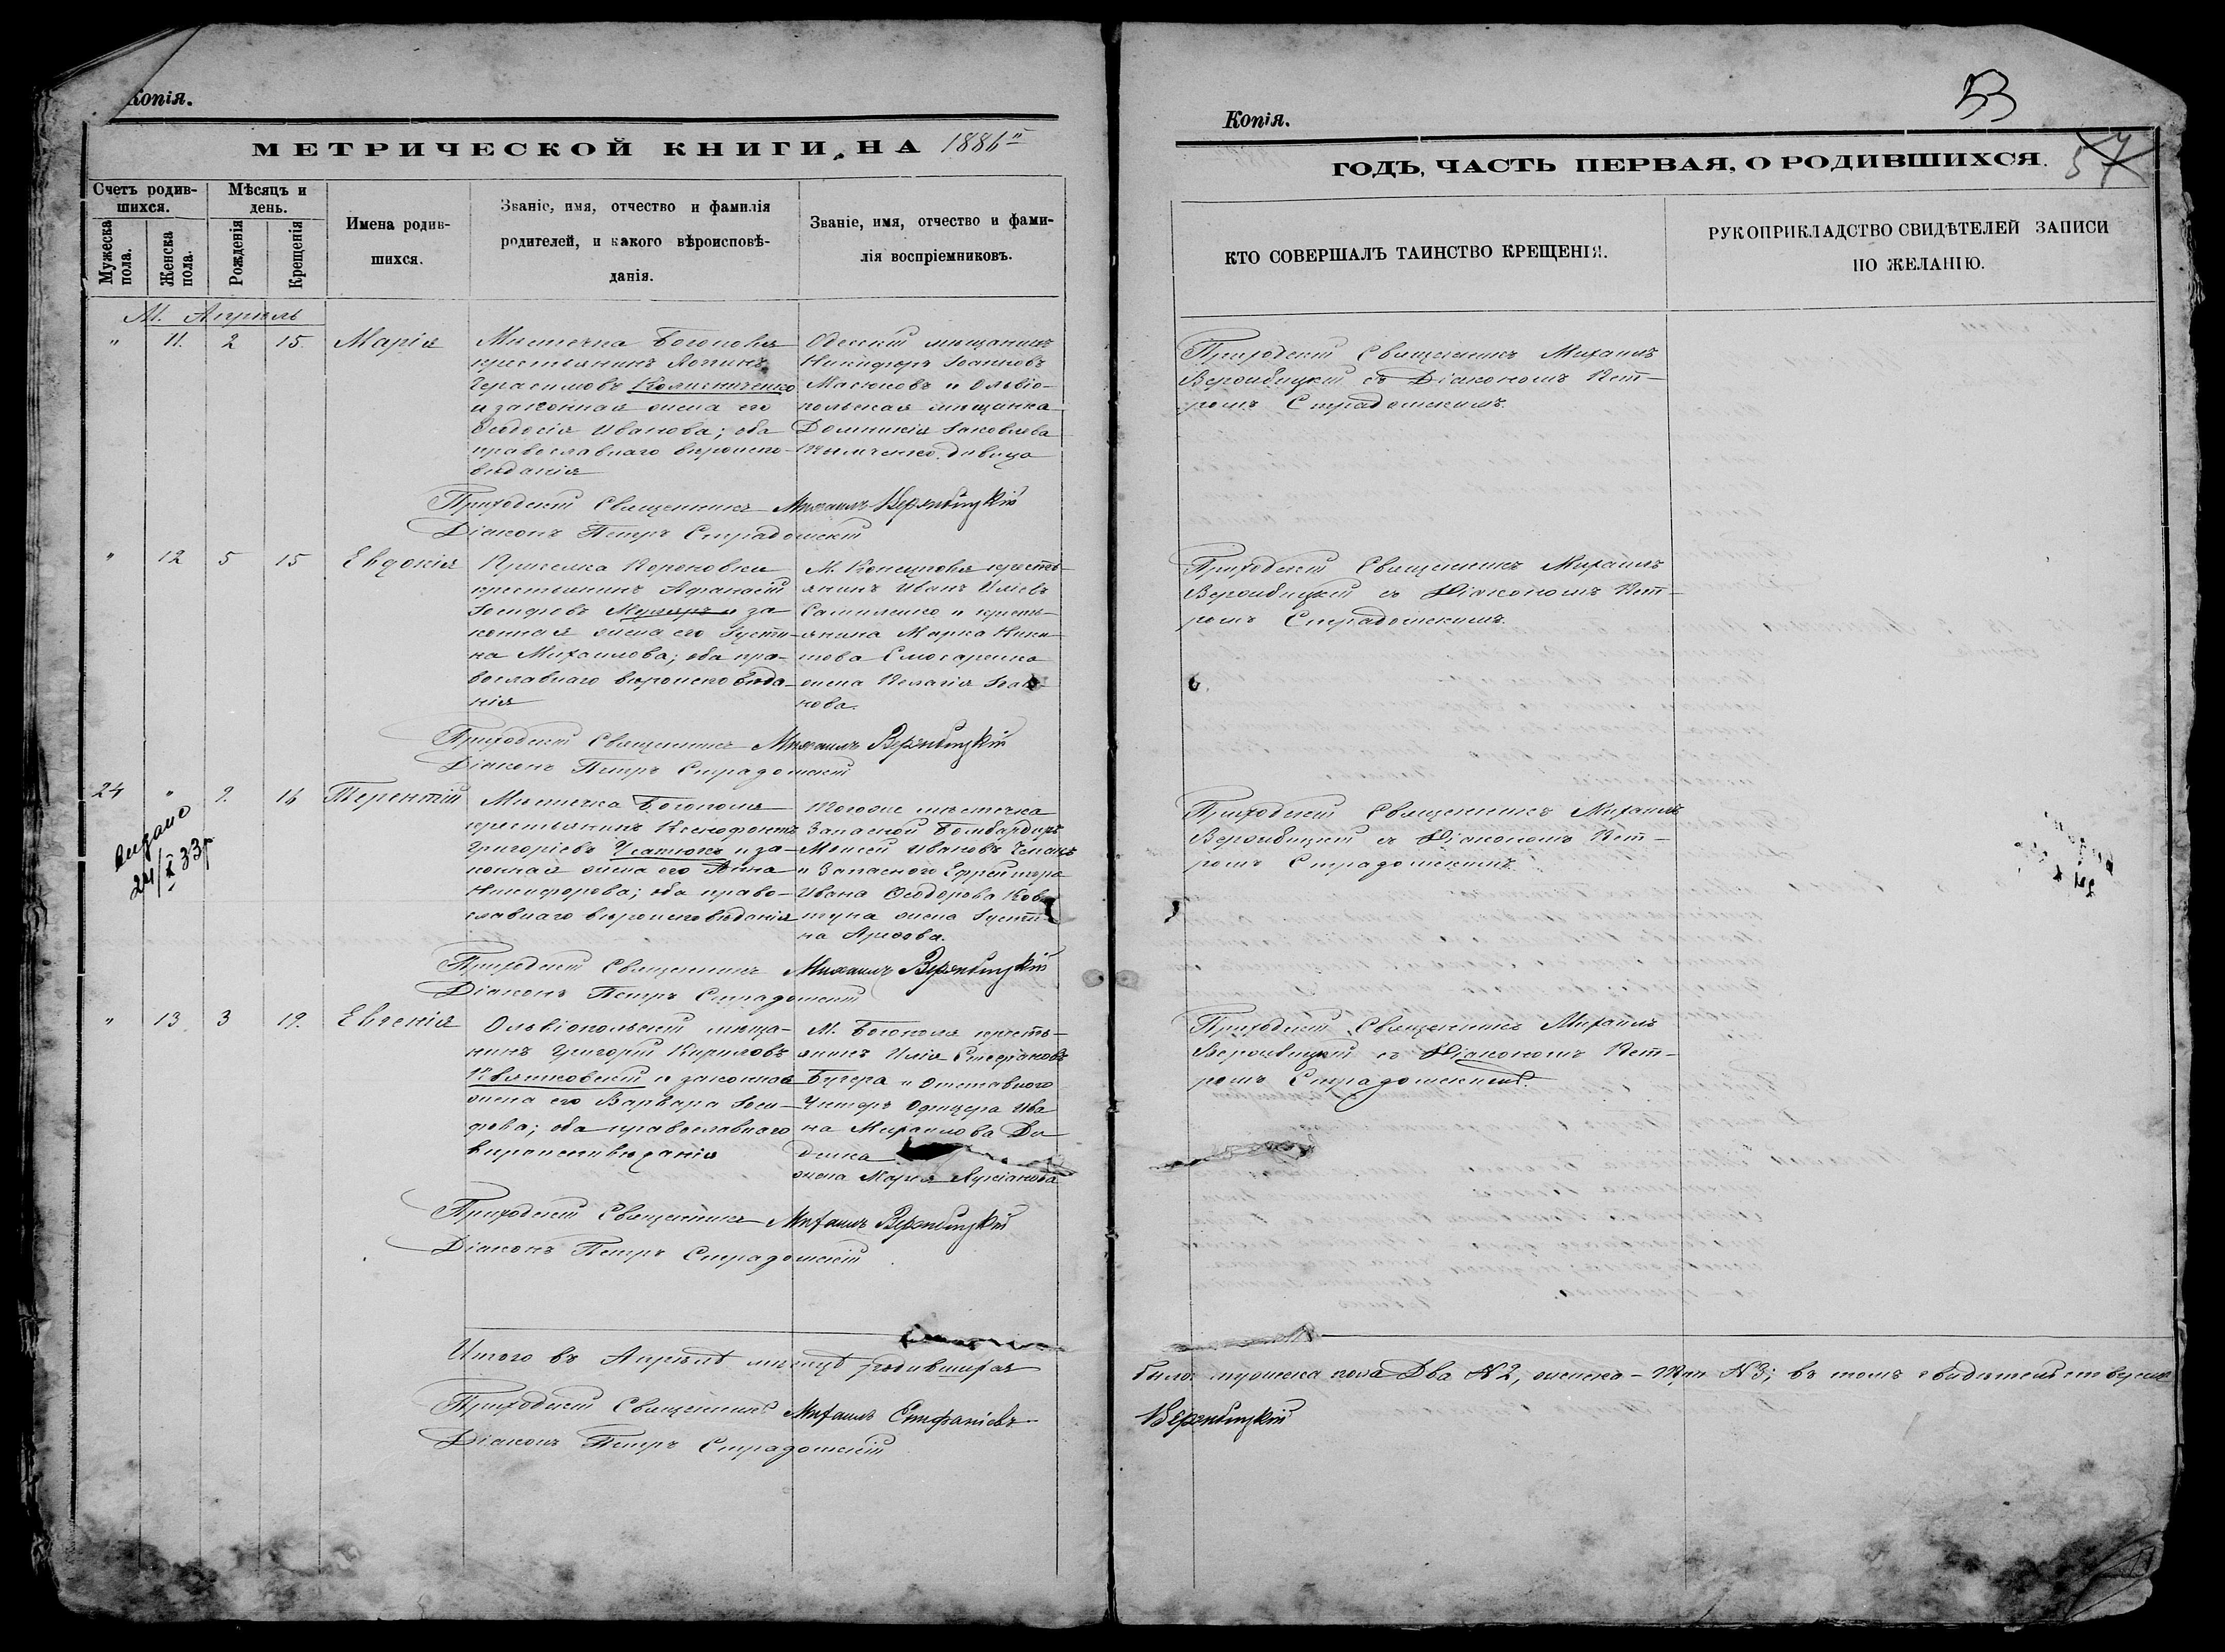 Копія.
МЕТРИЧЕСКОЙ КНИГИ, НА 1886й
Счетъ родив-
шихся.
Мѣсяцъ и
день.
Мужеска
пола.
Женска
пола.
Рожденія
Крещенія
Имена родив-
шихся.
Званіе, имя, отчество и фамилія
родителей, и какого вѣроисповѣ-
данія.
Званіе, имя, отчество и фами-
лія воспріемниковъ.
М. Апрѣль
" 11. 2 15. Марія
Мѣстечка Богополя
крестьянинъ Логинъ
Герасимовъ
и законная жена его
Ѳеодосія Иванова; оба
православнаго вѣроиспо-
вѣданія
Одесскій мѣщанинъ
Никифоръ Іоанновъ
Масюковъ и Ольвіо-
польская мѣщанка
Домникія Іаковлева
дѣвица
Приходскій Священникъ Михаилъ Вержбицкій
Діаконъ Петръ Страдомскій
" 12 5 15 Евдокія
Приселка Корокова
крестьянинъ Афанасій
Іосифовъ и за-
конная жена его Іусти-
на Михаилова; оба пра-
вославнаго вѣроисповѣда-
нія
М. Конецполя кресть-
янинъ Иванъ Иліевъ
и кресть-
янина Марка Ники-
това Слюсаренка
жена Пелагія Іоан-
нова.
Приходскій Священникъ Михаилъ Вержбицкій
Діаконъ Петръ Страдомскій
24 " 9. 16 Терентій
видано
24/X 33р
Мѣстечка Богополя
крестьянинъ Ксенофонтъ
Григоріевъ Усатюкъ и за-
конная жена его Анна
Никифорова; оба право-
славнаго вѣроисповѣданія
Тогоже мѣстечка
Запасной Бомбардиръ
Моисей Ивановъ
и Запасного Ефрейтора
Ивана Ѳеодорова Ков
туна жена Іусти-
на
Приходскій Священникъ Михаилъ Вержбицкій
Діаконъ Петръ Страдомскій
" 13 3 19. Евгенія
Ольвіопольскій мѣща-
нинъ Григорій Кириловъ
Квятковскій и законная
жена его Варвара Іоси-
фова; оба православнаго
вѣроисповѣданія
М. Богополя кресть-
янинъ Илія Стефановъ
Бугера и отставного
Унтеръ Офицера Ива
на Михаилова Ди
денка
жена Марія Лукіанова
Приходскій Священникъ Михаилъ Вержбицкій
Діаконъ Петръ Страдомскій
Итого въ Апрѣлѣ мѣсяцѣ родившихся
Приходскій Священникъ Михаилъ Стефаніевъ
Діаконъ Петръ Страдомскій
Копія.
53
57
ГОДЪ, ЧАСТЬ ПЕРВАЯ, О РОДИВШИХСЯ.
КТО СОВЕРШАЛЪ ТАИНСТВО КРЕЩЕНІЯ.
РУКОПРИКЛАДСТВО СВИДѢТЕЛЕЙ ЗАПИСИ
ПО ЖЕЛАНІЮ.
Приходскій Священникъ Михаилъ
Вержбицкій съ Діакономъ Пет-
ромъ Страдомскимъ.
Приходскій Священникъ Михаилъ
Вержбицкій съ Діакономъ Пет-
ромъ Страдомскимъ.
Приходскій Священникъ Михаилъ
Вержбицкій съ Діакономъ Пет-
ромъ Страдомскимъ.
Приходскій Священникъ Михаилъ
Вержбицкій съ Діакономъ Пет-
ромъ Страдомскимъ.
было мужеска пола Два № 2, женска - Три № 3; въ томъ свидѣтельствуемъ
Вержбицкій